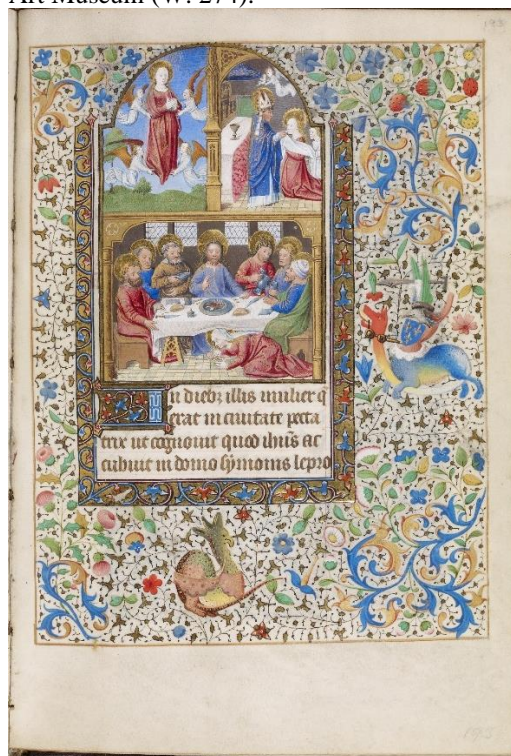 Art Museum (W. 274).
193
In diebz illis mulier q
erat in ciuitate pecca
trix ut cognouit quod ihus ac
cubuit in domo symonis lepro
193